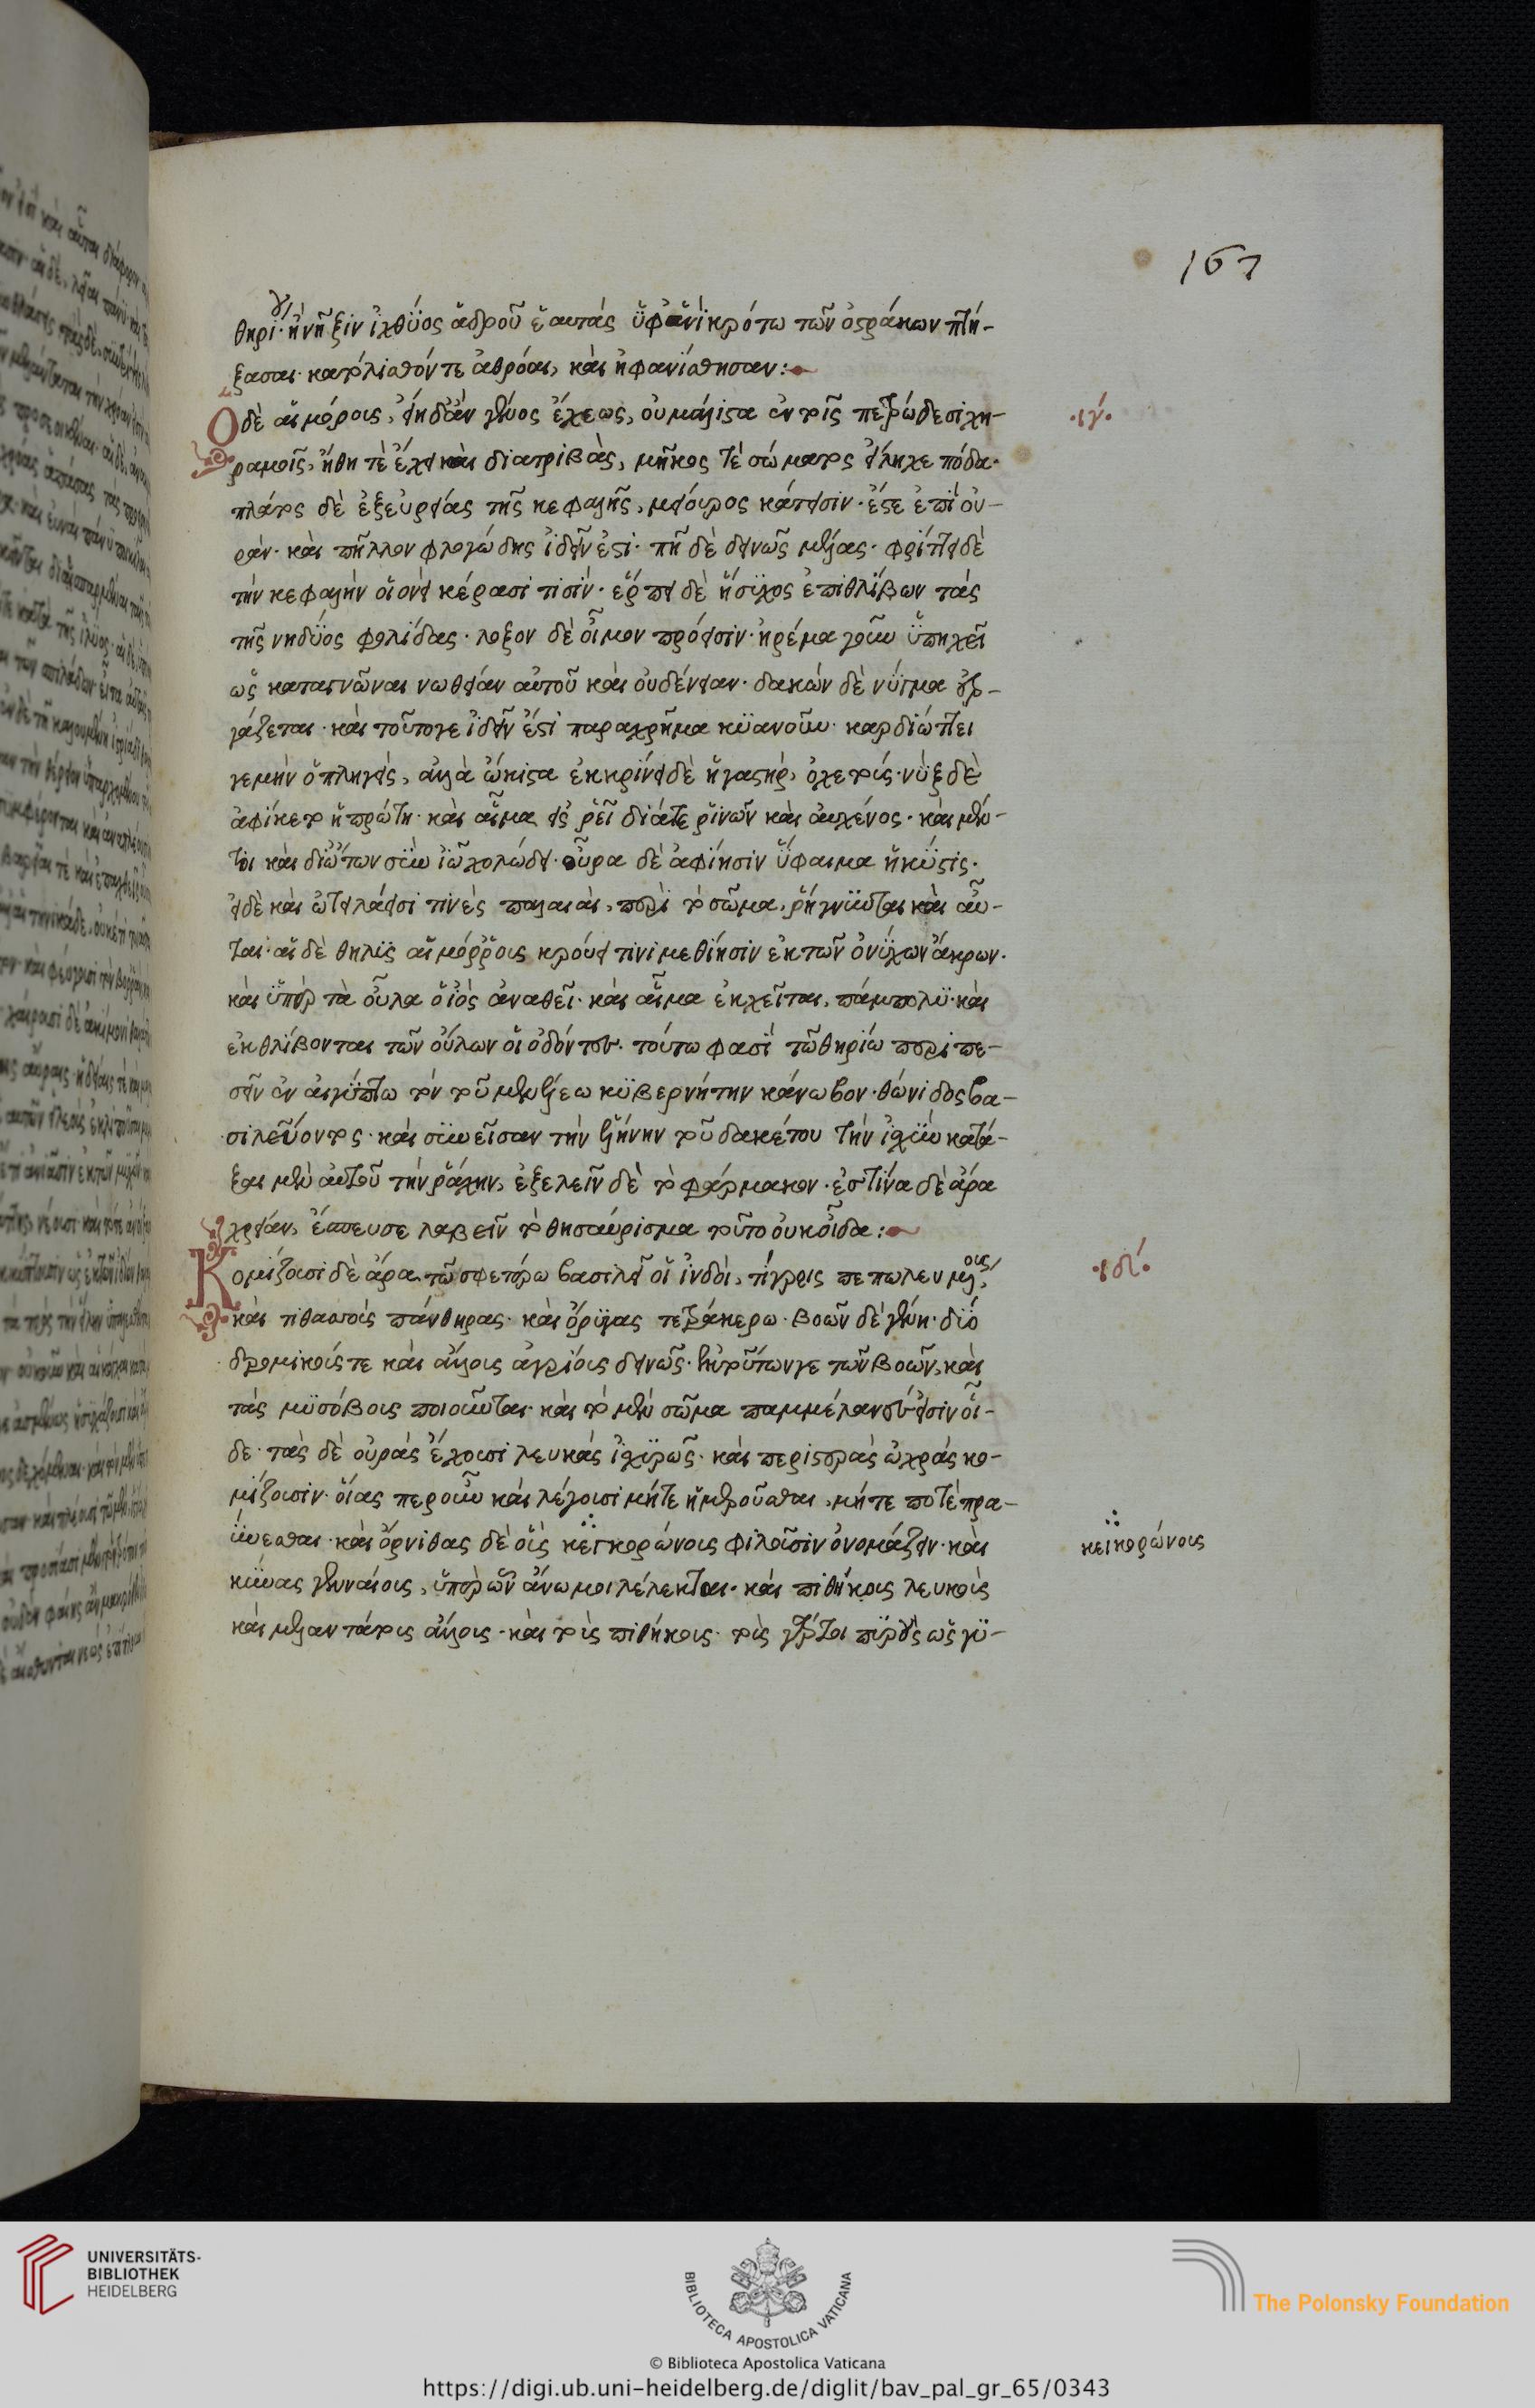 θηρι· ἢ νῆξιν ἰχθύος ἁδροῦ ἑαυτὰς ὑφ' ἑνὶ κρότω τῶν ὀστράκων πτή-
ξασαι· κατώλισθόν τε ἀθρόαι, καὶ ἠφανίσθησαν:
Ὁ δὲ αἱμόροις, εἴη δ' ἂν γένος ἔχεως, οὐ μάλιστα ἐν τοῖς πετρώδεσι χη-
ραμοῖς, ἤθη τὲ ἔχει καὶ διατριβὰς, μῆκος τὲ σώματος εἴληχε πόδα·
πλάτος δὲ ἐξ εὐρείας τῆς κεφαλῆς, μείουρος κάτεισιν· ἔστε ἐπὶ οὐ-
ράν· καὶ πῆλλον φλογώδης ἰδεῖν ἐστι· πῆ δὲ δεινῶς μέλας· φρίττει δὲ
τὴν κεφαλὴν οἱονεὶ κέρασι τισίν· ἕρπει δὲ ἥσυχος ἐπιθλίβων τὰς
τῆς νηδύος φολίδας· λοξον δὲ οἶμον πρόεισιν· ἠρέμα γοῦν ὑπηχεῖ
ὡς καταγνῶναι νωθείαν αὐτοῦ καὶ οὐδένειαν· δακὼν δὲ νύγμα ἐρ-
γάζεται· καὶ τοῦτογε ἰδεῖν ἐστι παραχρῆμα κυανοῦν· καρδιώττει
γεμὴν ὁ πληγεὶς, ἀλλὰ ὤκιστα ἐκκρίνει δὲ ἡ γαστὴρ, ὀχετοίς· νὺξ δὲ
ἀφίκετο ἡ πρώτη· καὶ αἷμα ἐκρεῖ διά τε ῥινῶν καὶ αὐχένος· καὶ μέν-
τοι καὶ δι' ὤτων σὺν ἰῶ χολώδει· οὖρα δὲ ἀφίησιν ὕφαιμα ἡ κύστις·
εἰ δὲ καὶ ὠτειλάεισι τινὲς παλαιαὶ, περὶ τὸ σῶμα, ῥήγνυνται καὶ αὗ-
ται· αἱ δὲ θηλὺς αἱμόρροις κρούει τινι μεθίησιν ἐκ τῶν ὀνύχων ἄκρων·
καὶ ὑπὲρ τὰ οὖλα ὁ ἰὸς ἀναθεῖ· καὶ αἷμα ἐκχεῖται, πάμπολυ· καὶ
ἐκθλίβονται τῶν οὔλων οἱ οδόντες· τούτω φασὶ τῶ θηρίω περιπε-
σεῖν ἐν αἰγύπτω τὸν τοῦ μενελέω κυβερνήτην κάνωβον· θώνιδος βα-
σιλεύοντος· καὶ συνεῖσαν τὴν ἑλένην τοῦ δακέτου τὴν ἰσχὺν κατά-
ξαι μὲν αὐτοῦ τὴν ῥάχην, ἐξελεῖν δὲ τὸ φάρμακον· ἐστίνα δὲ ἄρα
χρείαν, ἔσπευσε λαβεῖν τὸ θησαύρισμα τοῦτο οὐκ οἶδα:
Κομίζουσι δὲ ἄρα τῶ σφετέρω βασιλεῖ οἱ ἰνδοὶ, τίγρεις πεπωλευμένους,
καὶ τιθασοὺς πάνθηρας· καὶ ὄρυγας τετράκερω· βοῶν δὲ γένη· δύο
δρομικούς τε καὶ ἄλλους ἀγρίους δεινῶς· ἐκ τούτωνγε τῶν βοῶν, καὶ
τὰς μυσόβους ποιοῦνται· καὶ τὸ μὲν σῶμα παμμέλανές εἰσιν οἵ-
δε· τὰς δὲ οὐρὰς ἔχουσι λευκὰς ἰσχυρῶς· καὶ περιστρὰς ὠχρὰς κο-
μίζουσιν· οἵας περοῦν καὶ λέγουσι μήτε ἡμεροῦσθαι, μήτε ποτὲ πρα-
ύνεσθαι· καὶ ὄρνιθας δὲ οὓς κεγκορώνους φιλοῦσιν ὀνομάζειν· καὶ
κύνας γενναίους, ὑπὲρ ὧν ἄνω μοι λέλεκται· καὶ πιθήκους λευκοὺς
καὶ μελαντάτους ἄλλους· καὶ τοὺς πιθήκους· τοὺς γάρτοι πυροὺς ὡς γυ-
·ιγ΄·
·ιδ΄·
κεϊκορώνους
167
UNIVERSITÄTS-
BIBLIOTHEK
HEIDELBERG
BIBLIOTECA APOSTOLICA VATICANA
© Biblioteca Apostolica Vaticana
The Polonsky Foundation
https://digi.ub.uni-heidelberg.de/diglit/bav_pal_gr_65/0343